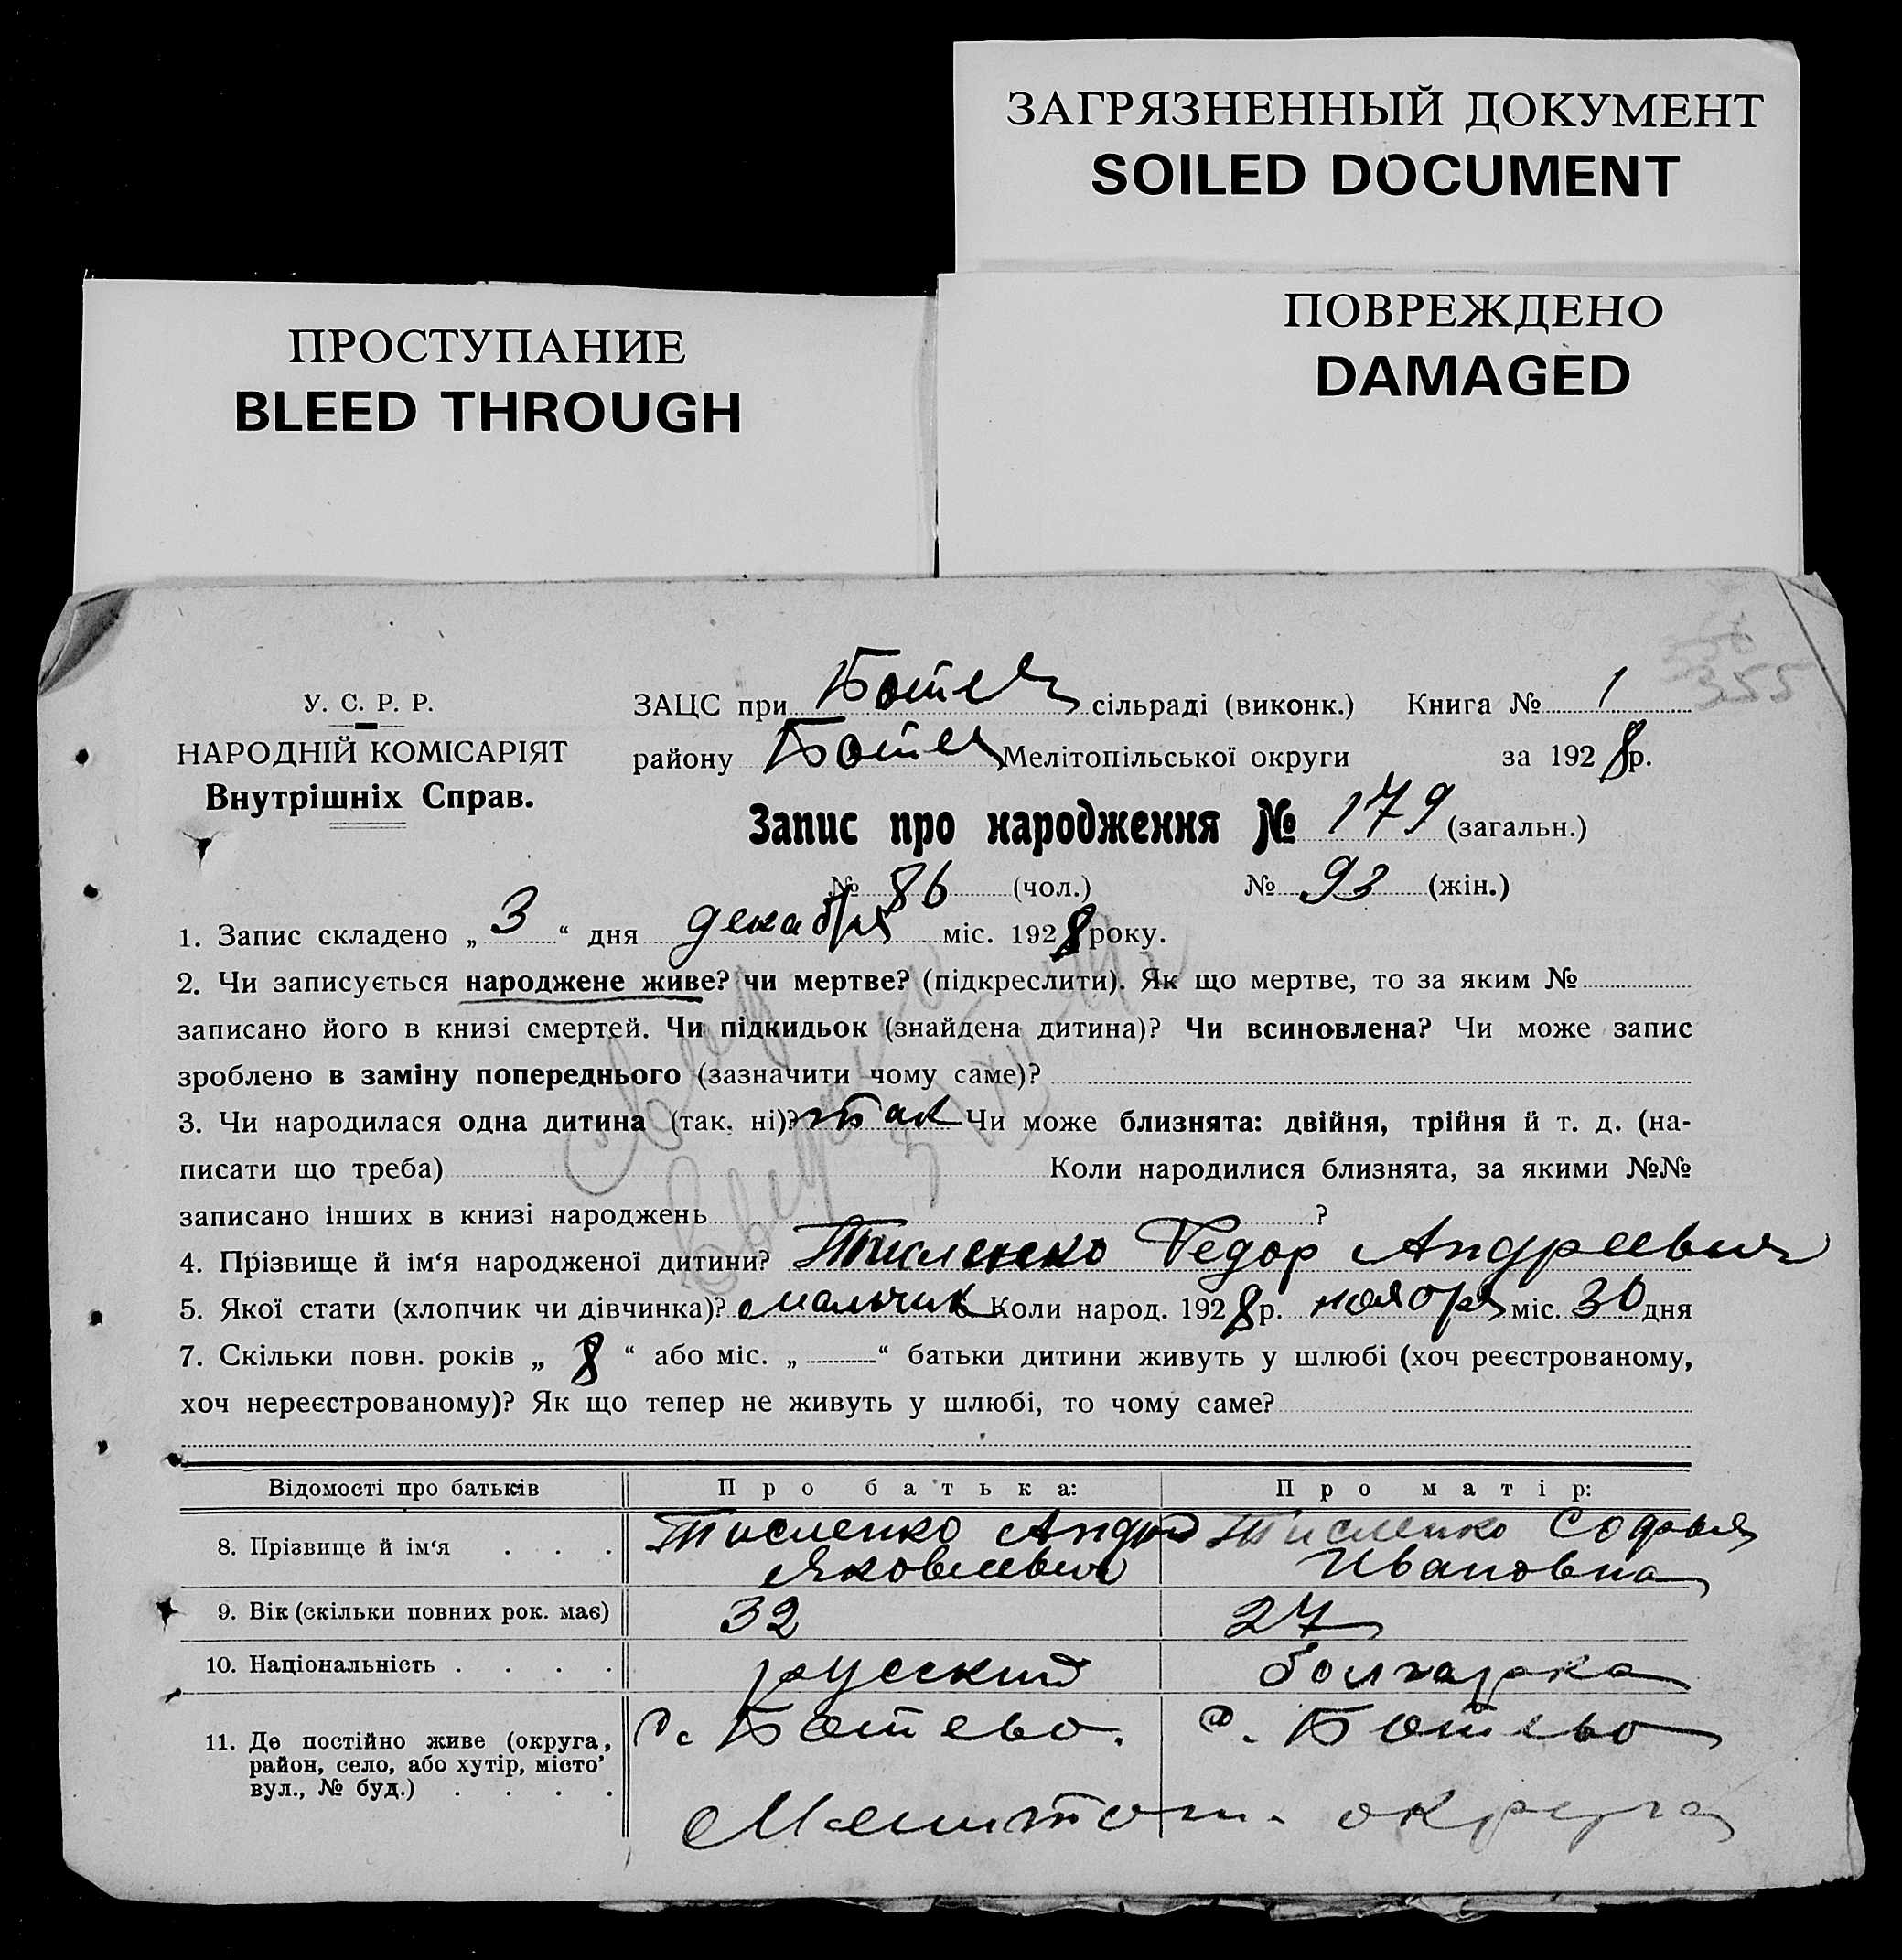 ЗАГРЯЗНЕННЫЙ ДОКУМЕНТ
SOILED DOCUMENT
ПОВРЕЖДЕНО
DAMAGED
ПРОСТУПАНИЕ
BLEED THROUGH
355
У. С. Р. Р.
НАРОДНІЙ КОМІСАРІЯТ
Внутрішніх Справ.
ЗАЦС при сільраді (виконк.) Книга № 1
району Мелітопільської округи за 1928 р.
Запис про народження № 179 (загальн.)
№ 86 (чол.) № 93 (жін.)
1. Запис складено „ 3 “ дня декабря міс. 1928 року.
2. Чи записується народжене живе? чи мертве? (підкреслити). Як що мертве, то за яким №
записано його в книзі смертей. Чи підкидьок (знайдена дитина)? Чи всиновлена? Чи може запис
зроблено в заміну попереднього (зазначити чому саме)?
3. Чи народилася одна дитина (так, ні)? так Чи може близнята: двійня, трійня й т. д. (на-
писати що треба) Коли народилися близнята, за якими №№
записано інших в книзі народжень ?
4. Прізвище й ім‘я народженої дитини? Тисленко Федор Андреевич
5. Якої стати (хлопчик чи дівчинка)? мальчик Коли народ. 1928 р. ноября міс. 30 дня
7. Скільки повн. років „ 8 “ або міс. „ “ батьки дитини живуть у шлюбі (хоч реєстрованому,
хоч нереєстрованому)? Як що тепер не живуть у шлюбі, то чому саме?
Відомості про батьків Про батька: Про матір:
8. Прізвище й ім‘я . . . Тисленко Андрей Яковлевич Тисленко Софья Ивановна
9. Вік (скільки повних рок. має) 32 27
10. Національність . . . . русский болгарка
11. Де постійно живе (округа, район, село, або хутір, місто’ вул., № буд.) . . . . с. Ботьево. с. Ботьево
Мелитоп. округа